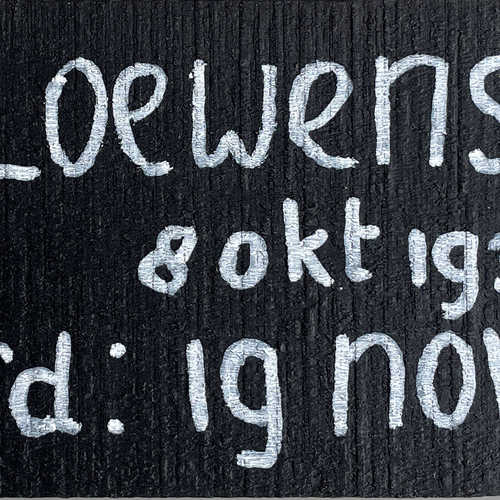 Loewens
8 okt 193
rd: 19 nov